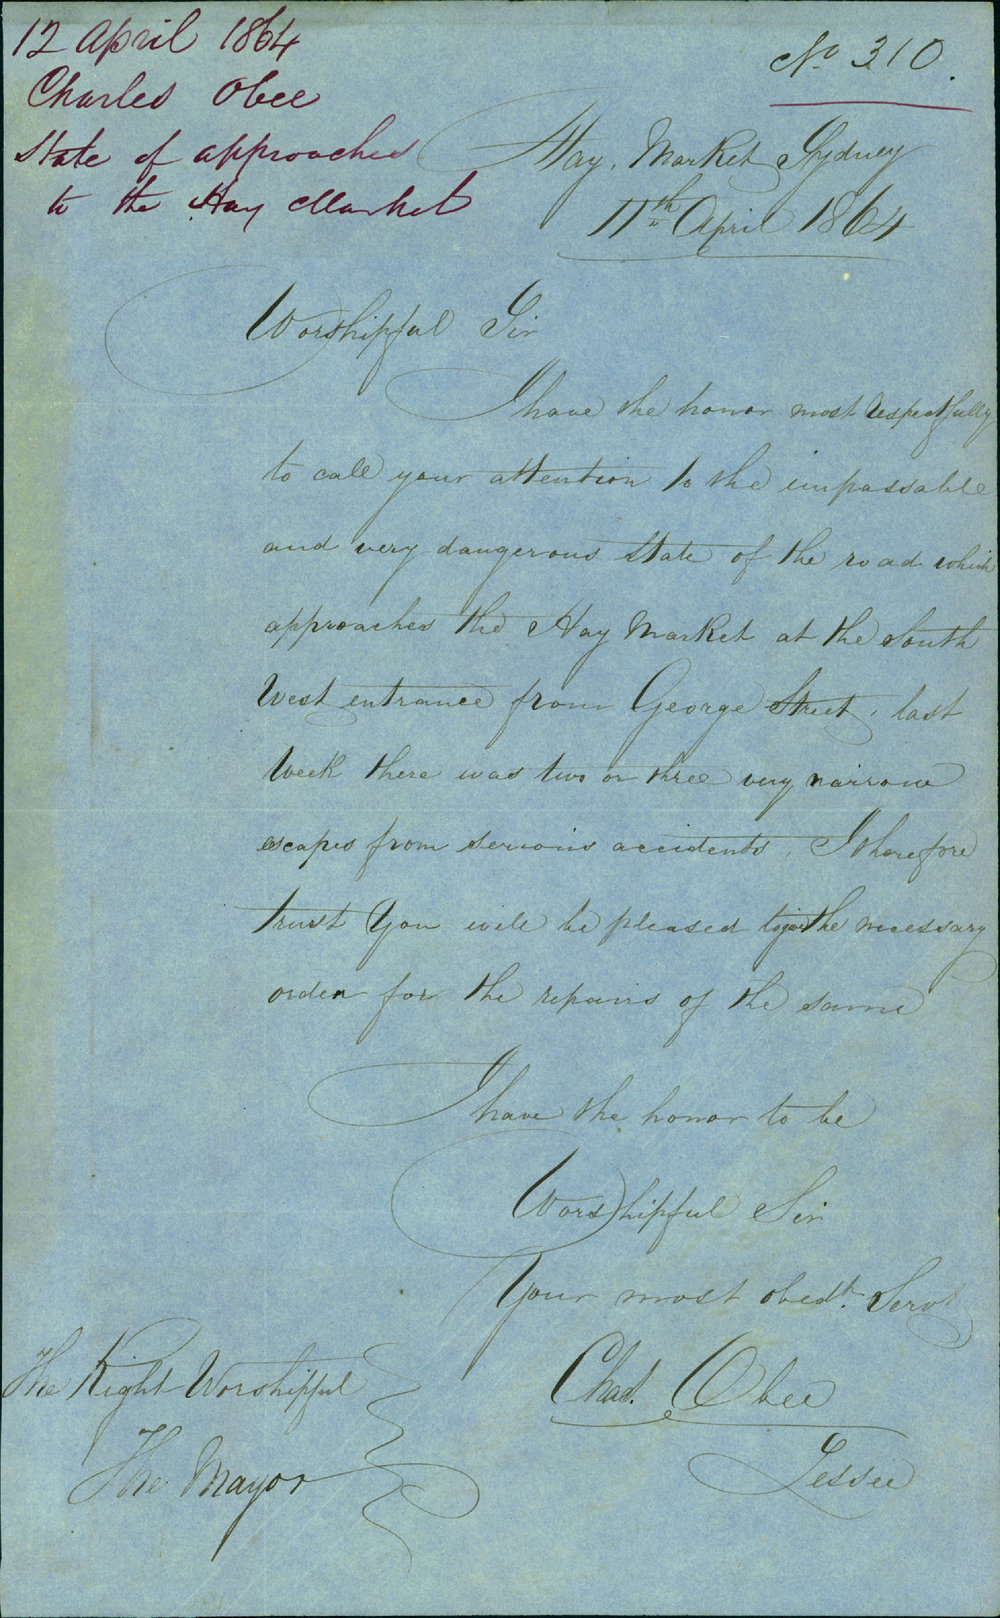 12 April 1864
Charles Obee
State of approaches
to the Hay Market
No 310.
Hay. Market Sydney
11th April 1864
Worshipful Sir
I have the honor most respectfully
to call your attention to the impassable
and very dangerous state of the road which
approaches the Hay Market at the South
West entrance from George Street, last
Week there was two or three very narrow
escapes from serious accidents. I therefore
trust You will be pleased to give the necessary
order for the repairs of the same
I have the honor to be
Worshipful Sir
Your most obedt. Servt
Chas. Obee
Lessee
The Right Worshipful
The Mayor